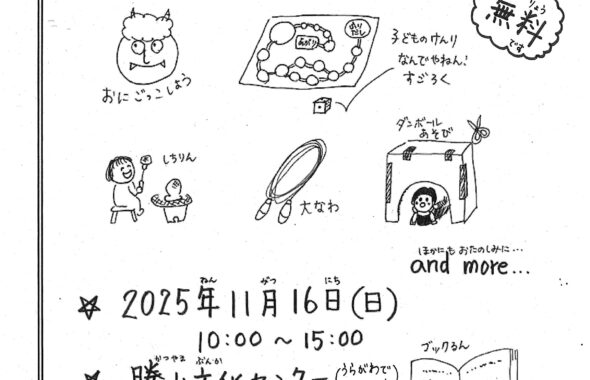 りょう
無料
です
ふりだし
あがり
子どものけんり
なんでやねん!
すごろく
おにごっこしよう
ダンボール
あそび
しちりん
大なわ
ほかにも おたのしみに…
and more...
ねん がつ にち
☆ 2025年11月16日(日)
10:00 ~ 15:00
ブックるん
かつやま ぶんか
☆ 勝山文化センター(うらがわで